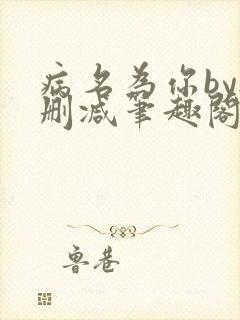 病名为你by无
删减笔趣阁
鲁巷